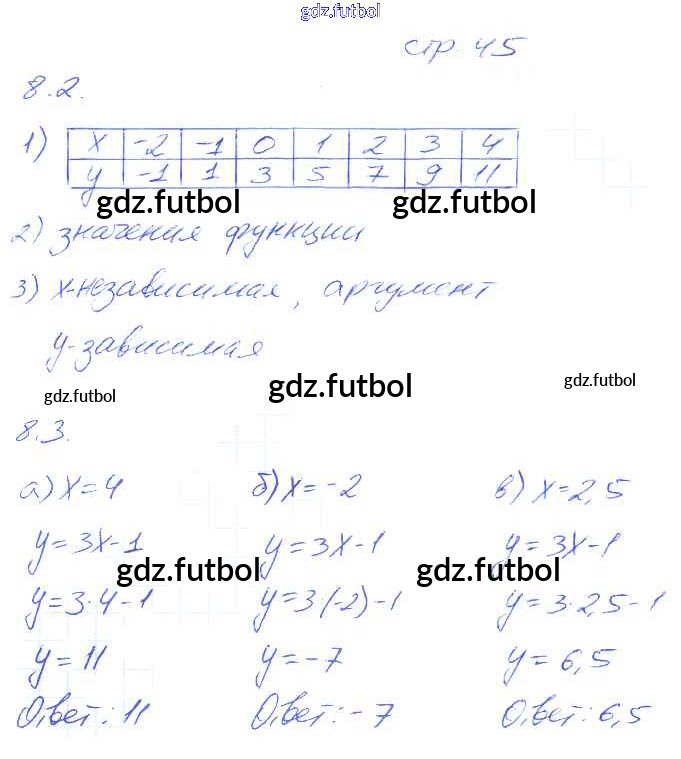 gdz.futbol
стр. 45
8.2.
1) x -2 -1 0 1 2 3 4
y -1 1 3 5 7 9 11
gdz.futbol gdz.futbol
2) значения функции
3) x-независимая, аргумент
y-зависимая
gdz.futbol gdz.futbol gdz.futbol
8.3.
а) x=4 б) x=-2 в) x=2,5
y=3x-1 y=3x-1 y=3x-1
gdz.futbol gdz.futbol
y=3·4-1 y=3·(-2)-1 y=3·2,5-1
y=11 y=-7 y=6,5
Ответ: 11 Ответ: -7 Ответ: 6,5